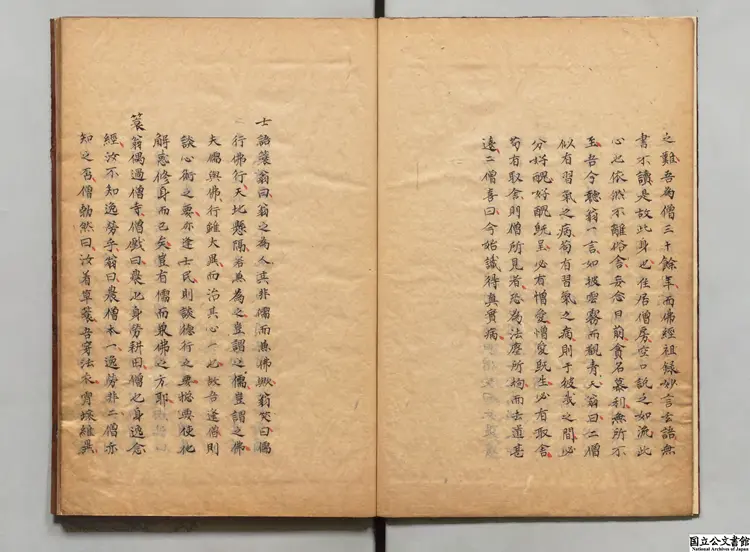 之難吾為僧三十餘年而佛經祖録妙言玄語無
書不讀是故此身也住居僧房空口説之如流此
心也依然不離俗舍妄念目前貪名慕利無所不
至吾今聽翁一言如披雲霧而觀青天翁曰二僧
似有習氣之病苟有習氣之病則于彼我之間必
分好醜好醜既呈必有憎愛憎愛既生必有取舍
苟有取舍則僧所見者殆為法塵所拘而去道甚
遠二僧喜曰今始識得真實病
士語蓑翁曰翁之為人其非儒而無佛歟翁笑曰儒
行佛行天地懸隔若無為之豈謂之儒豈謂之佛
夫儒與佛行雖大異而治其心一也故吾逢僧則
談心術之要亦逢士民則談德行之要皆與使他
解惑修身而已矣豈有儒而衆佛之方耶
蓑翁偶過僧寺僧戲曰農也身勞耕曰僧也身逸念
經汝不知逸勞乎翁曰農僧本一逸勞非二僧亦
知之否僧勃然曰汝着草蓑吾穿法衣霄壤雖異
国立公文書館
National Archives of Japan